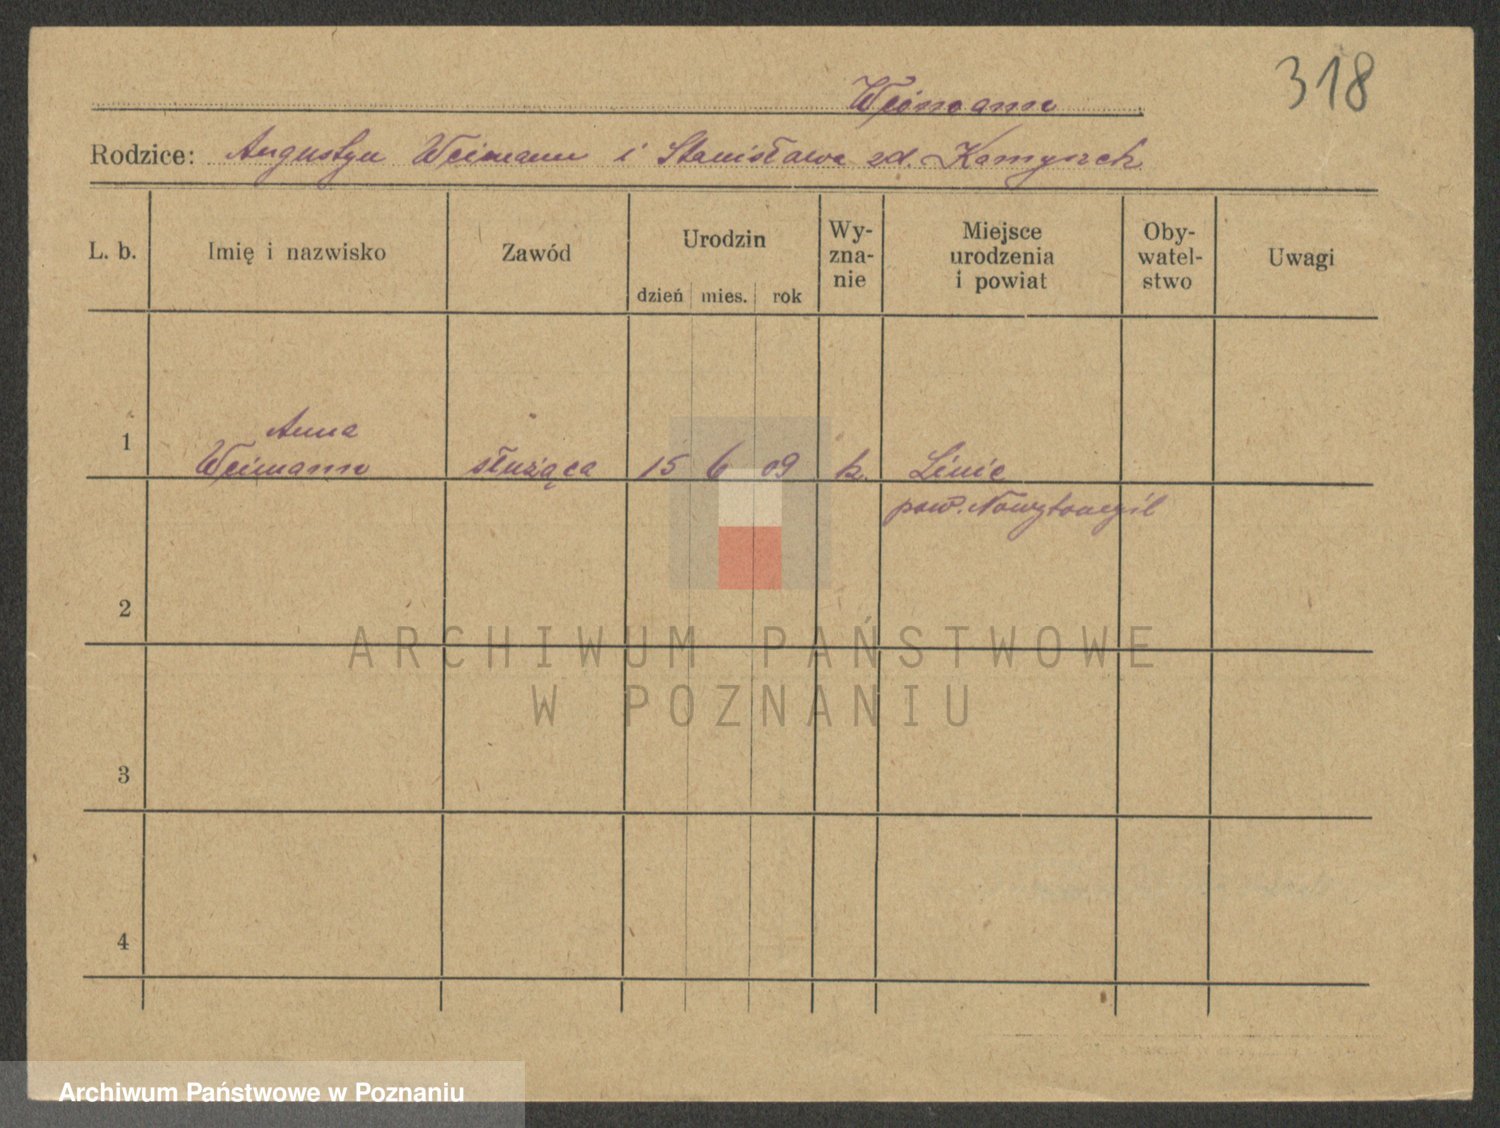 318
Weimann
Rodzice: Augustyn Weimann i Stanisława zd. Kamyszek
L. b. Imię i nazwisko Zawód Urodzin dzień mies. rok Wy-zna-nie Miejsce urodzenia i powiat Oby-watel-stwo Uwagi
Anna
1 Weimann służąca 15 6 09 k. Linie
pow. Nowytomyśl
2
3
4
ARCHIWUM PAŃSTWOWE
W POZNANIU
Archiwum Państwowe w Poznaniu